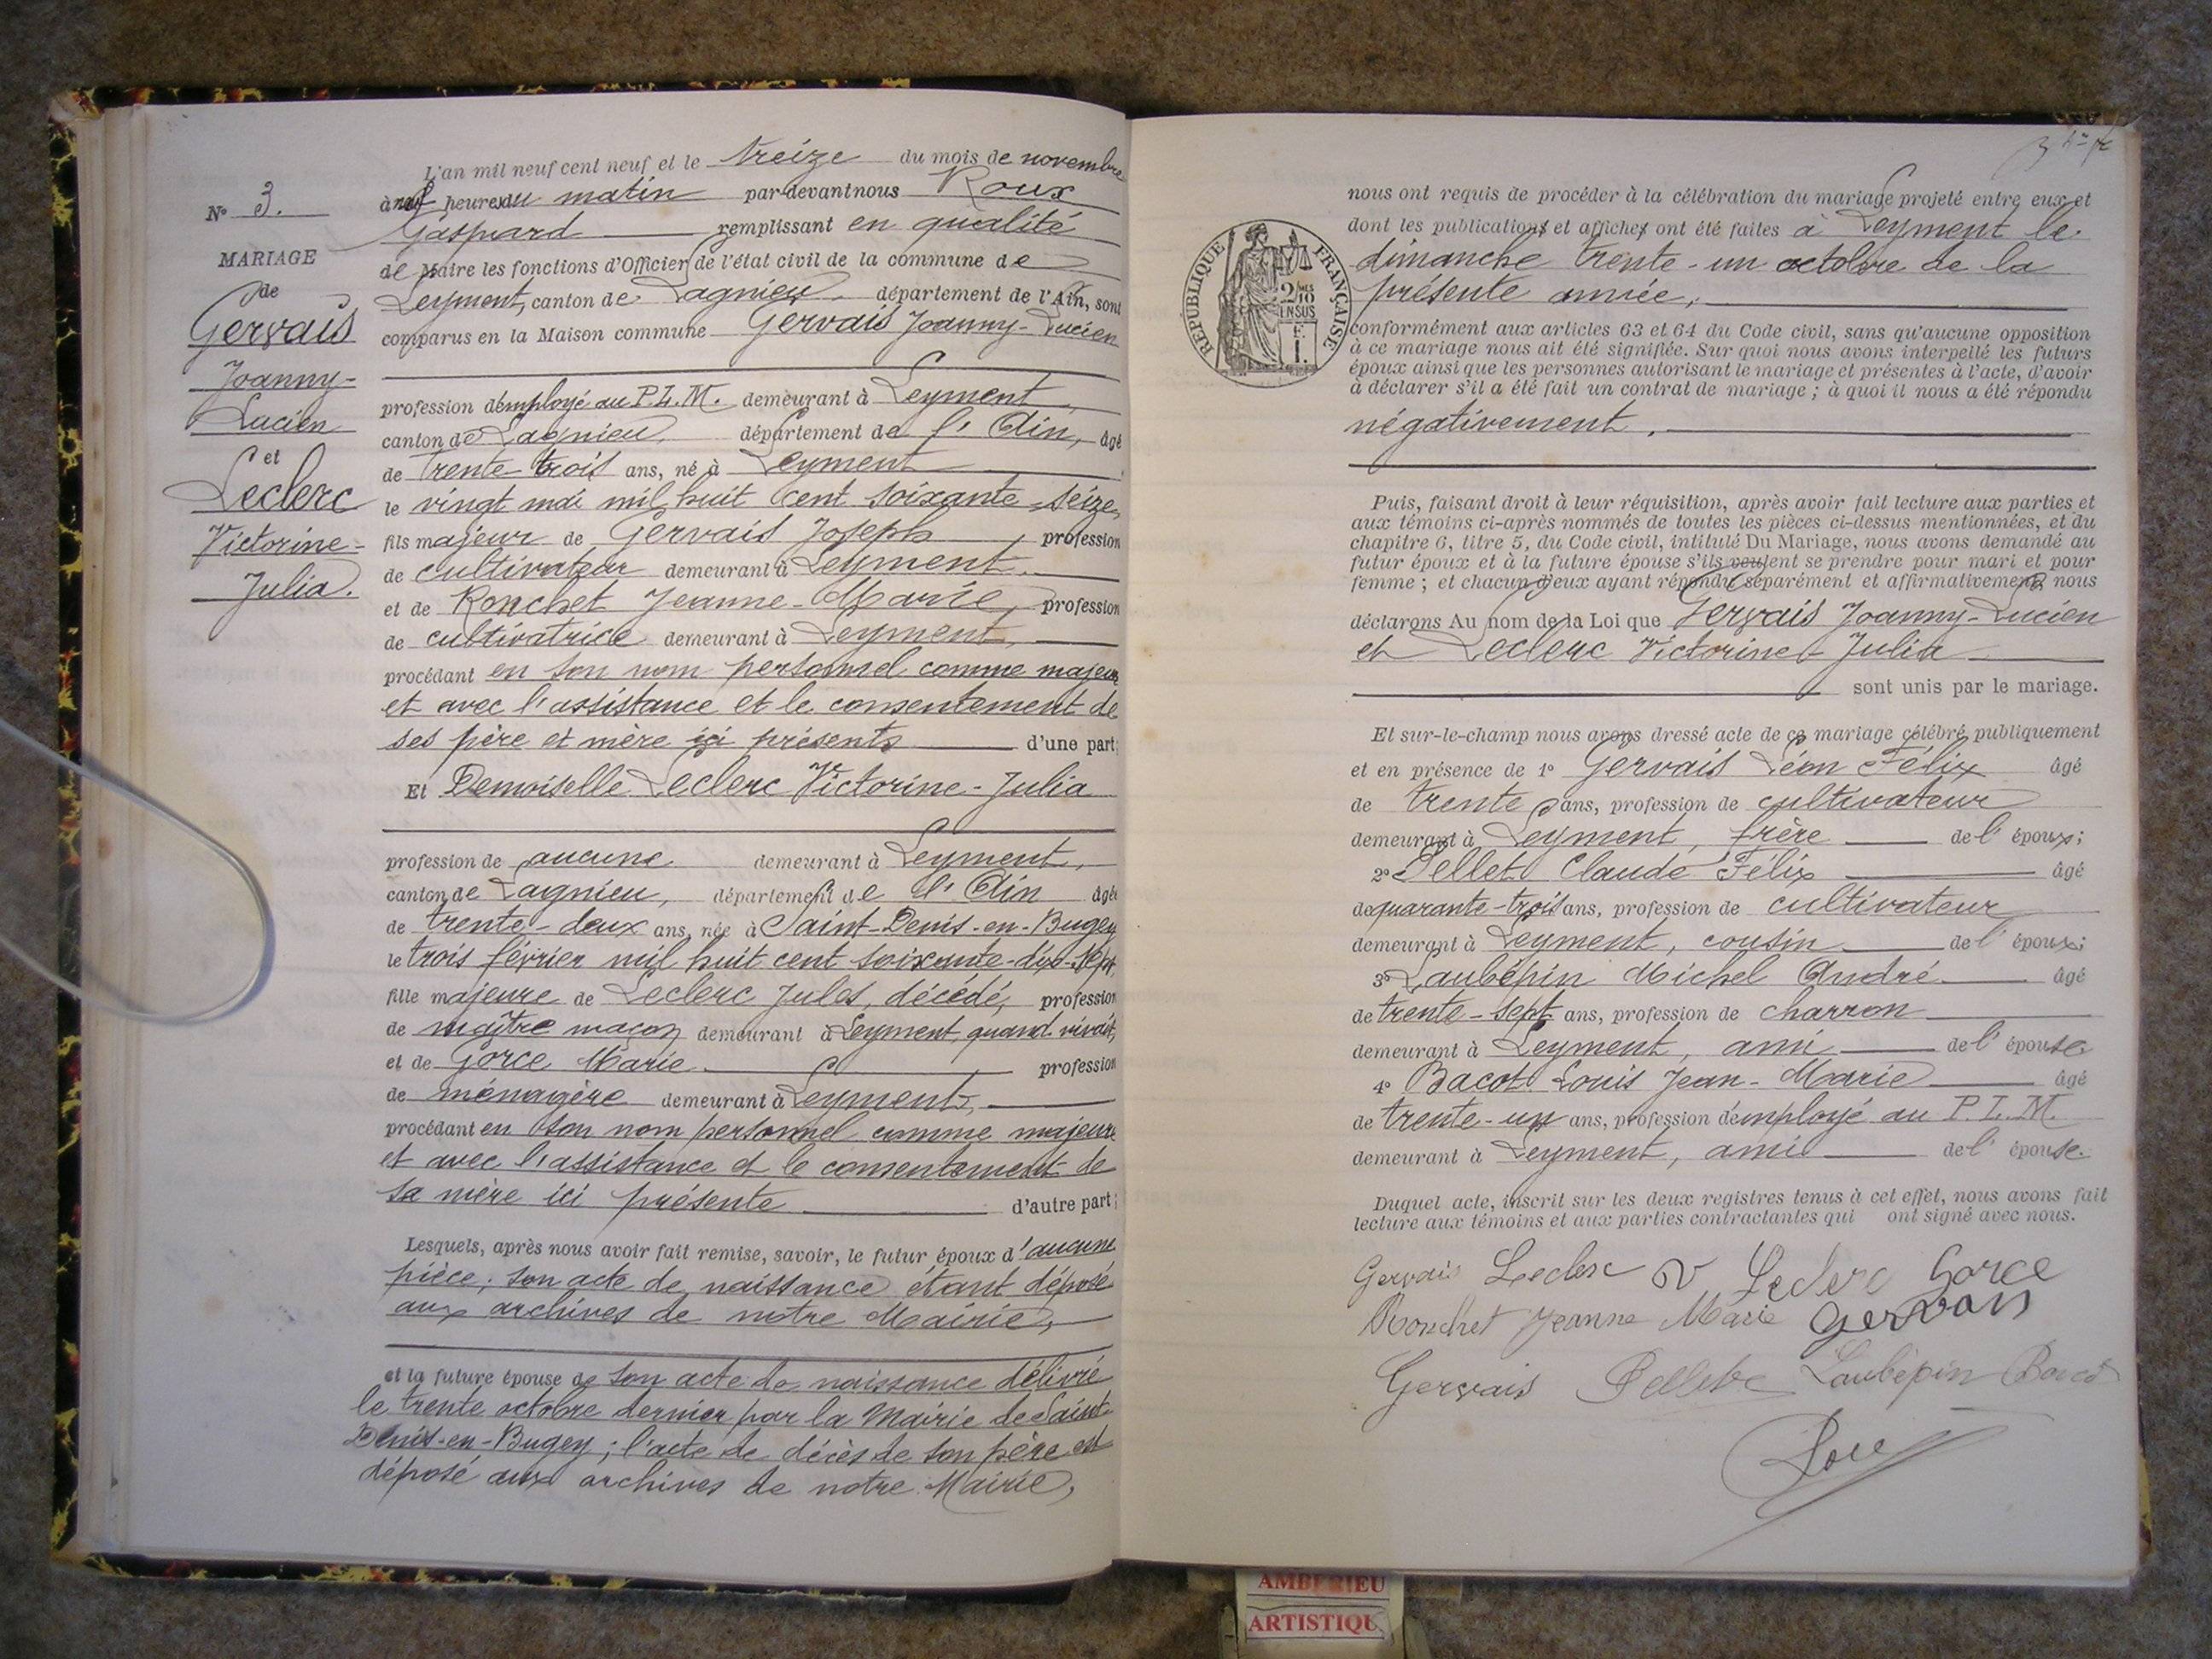 L'an mil neuf cent neuf et le treize du mois de novembre
à neuf heures du matin par-devant nous Roux
Gaspard remplissant en qualité
de Maire les fonctions d'Officier de l'état civil de la commune de
Leyment, canton de Lagnieu, département de l'Ain, sont
comparus en la Maison commune Gervais Joanny-Lucien
profession d'employé au P.L.M. demeurant à Leyment
canton de Lagnieu, département de l'Ain, âgé
de trente trois ans, né à Leyment
le vingt mai mil huit cent soixante-seize,
fils majeur de Gervais Joseph, profession
de cultivateur demeurant à Leyment,
et de Ronchet Jeanne-Marie, profession
de cultivatrice demeurant à Leyment,
procédant en son nom personnel comme majeur
et avec l'assistance et le consentement de
ses père et mère ici présents d'une part;
Et Demoiselle Leclerc Victorine-Julia
profession de aucune demeurant à Leyment,
canton de Lagnieu, département de l'Ain âgée
de trente-deux ans, née à Saint-Denis-en-Bugey
le trois février mil huit cent soixante-dix-sept,
fille majeure de Leclerc Jules, décédé, profession
de maître maçon demeurant à Leyment, quand vivait,
et de Gorce Marie profession
de ménagère demeurant à Leyment,
procédant en son nom personnel comme majeure
et avec l'assistance et le consentement de
sa mère ici présente d'autre part;
Lesquels, après nous avoir fait remise, savoir, le futur époux d'aucune
pièce, son acte de naissance étant déposé
aux archives de notre Mairie,
et la future épouse de son acte de naissance délivré
le trente octobre dernier par la Mairie de Saint-
Denis-en-Bugey ; l'acte de décès de son père est
déposé aux archives de notre Mairie,
N° 3.
MARIAGE
de
Gervais
Joanny-
Lucien
et
Leclerc
Victorine-
Julia.
nous ont requis de procéder à la célébration du mariage projeté entre eux et
dont les publications et affiches ont été faites à Leyment le
dimanche trente-un octobre de la
présente année,
conformément aux articles 63 et 64 du Code civil, sans qu'aucune opposition
à ce mariage nous ait été signifiée. Sur quoi nous avons interpellé les futurs
époux ainsi que les personnes autorisant le mariage et présentes à l'acte, d'avoir
à déclarer s'il a été fait un contrat de mariage ; à quoi il nous a été répondu
négativement.
Puis, faisant droit à leur réquisition, après avoir fait lecture aux parties et
aux témoins ci-après nommés de toutes les pièces ci-dessus mentionnées, et du
chapitre 6, titre 5, du Code civil, intitulé Du Mariage, nous avons demandé au
futur époux et à la future épouse s'ils veulent se prendre pour mari et pour
femme ; et chacun d'eux ayant répondu séparément et affirmativement, nous
déclarons Au nom de la Loi que Gervais Joanny-Lucien
et Leclerc Victorine Julia
sont unis par le mariage.
Et sur-le-champ nous avons dressé acte de ce mariage célébré publiquement
et en présence de 1° Gervais Léon Félix âgé
de trente ans, profession de cultivateur
demeurant à Leyment, frère de l'époux;
2° Pellet Claude Félix âgé
de quarante-trois ans, profession de cultivateur
demeurant à Leyment, cousin de l'époux;
3° Laubépin Michel André âgé
de trente-sept ans, profession de charron
demeurant à Leyment, ami de l'épouse
4° Bacot Louis Jean-Marie âgé
de trente-un ans, profession d'employé au P.L.M.
demeurant à Leyment, ami de l'épouse.
Duquel acte, inscrit sur les deux registres tenus à cet effet, nous avons fait
lecture aux témoins et aux parties contractantes qui ont signé avec nous.
Gervais Leclerc V Leclerc Gorce
Ronchet Jeanne Marie Gervais
Gervais Laubépin Bacot
RÉPUBLIQUE FRANÇAISE
2/10
EN SUS
F
1.
AMBERIEU
ARTISTIQU